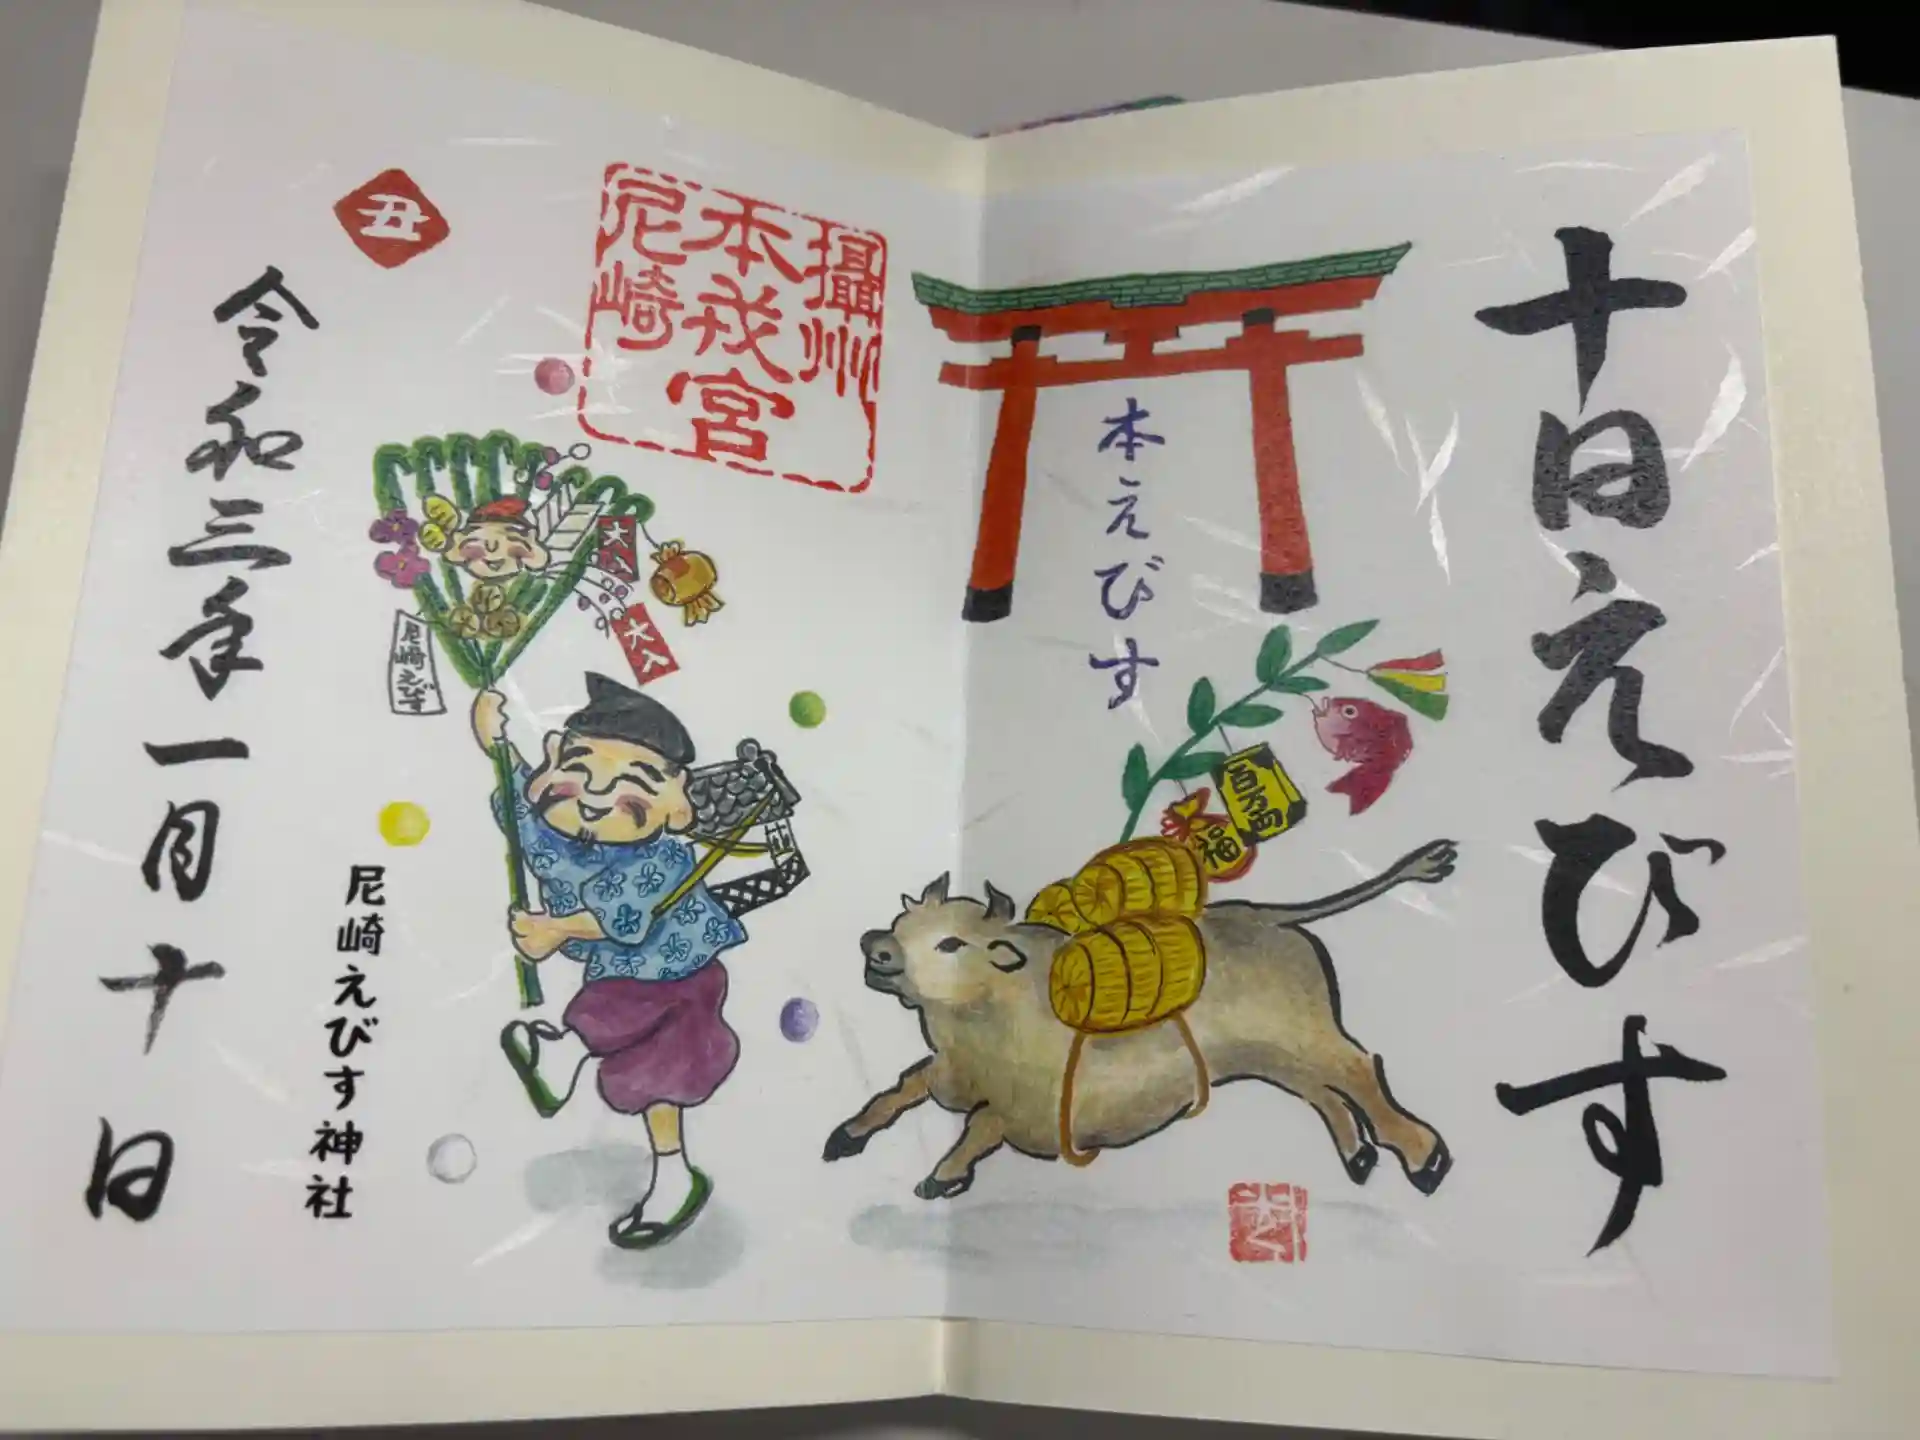 十日えびす
本えびす
百万両
福
攝州
本戎宮
尼崎
大入
大入
尼崎えびす
尼崎えびす神社
丑
令和三年一月十日